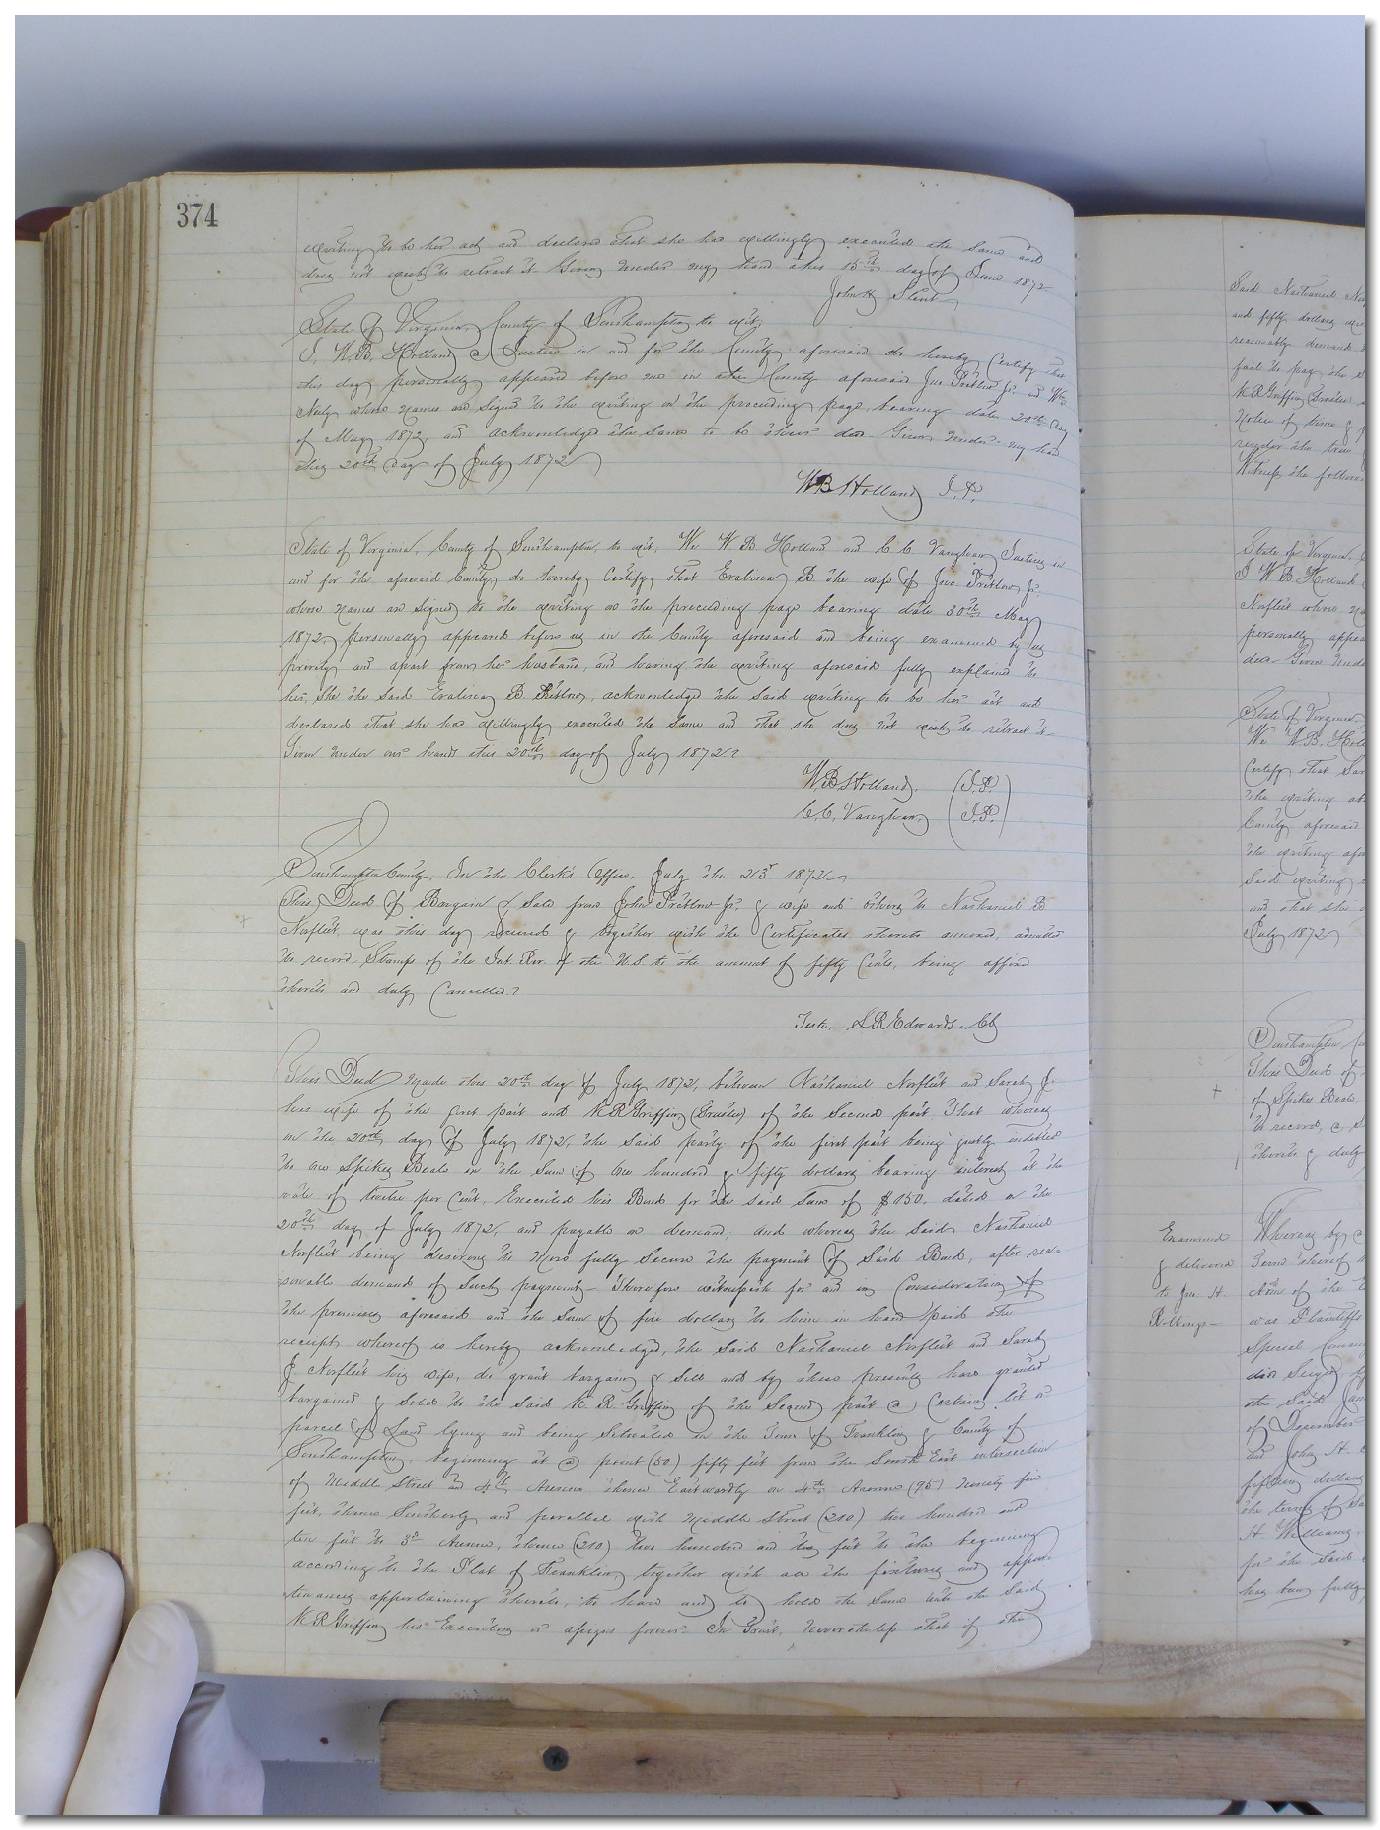 374
writing to be her act and declared that she had willingly executed the same and
does not wish to retract it. Given under my hand this 15th day of June 1872
John H Stent
State of Virginia, County of Southampton to wit,
I, W. B. Holland a Justice in and for the County aforesaid do hereby Certify that
this day personally appeared before me in the County aforesaid Jno Pretlow Jr. and Wm
Neely whose names are signed to the writing on the preceeding page bearing date 20th day
of May 1872, and acknowledged the same to be their deed Given under my hand
this 20th day of July 1872
W B Holland J.P.
State of Virginia, County of Southampton, to wit, We W B Holland and C C Vaughan Justices in
and for the aforesaid County, do hereby Certify, that Evalina B the wife of Jno Pretlow Jr.
whose names are signed to the writing on the preceeding page bearing date 30th May
1872, personally appeared before us in the County aforesaid and being examined by us
privily and apart from her husband, and having the writing aforesaid fully explained to
her, She the said Evalina B Pretlow, acknowledged the said writing to be her act and
declared that she had willingly executed the same and that she does not wish to retract it
Given under our hands this 20th day of July 1872
W. B. Holland. (J.P.)
C. C. Vaughan (J.P.)
Southampton County, In the Clerk's Office, July the 23d 1872
This Deed of Bargain & Sale from John Pretlow Jr. & wife and others to Nathaniel B
Norfleet, was this day received & together with the Certificates thereto annexed, admitted
to record, Stamps of the Int. Rev. of the U.S. to the amount of fifty Cents, being affixed
thereto and duly Cancelled
Teste. L R Edwards. Clk
This Deed made this 20th day of July 1872, between Nathaniel Norfleet and Sarah J.
his wife of the first part and K R Griffin (Trustee) of the Second part That whereas
on the 20th day of July 1872, the said party of the first part being justly indebted
to one Spikes Beale in the Sum of One hundred & fifty dollars bearing interest at the
rate of twelve per Cent, Executed his Bond for the said Sum of $150. dated on the
20th day of July 1872, and payable on demand, and whereas the Said Nathaniel
Norfleet being desirous to More fully Secure the payment of Said Bond, after rea-
sonable demand of Such payment - Therefore witnesseth for and in Consideration of
the premises aforesaid and the Sum of five dollars to him in hand paid the
receipt whereof is hereby acknowledged, the Said Nathaniel Norfleet and Sarah
J. Norfleet his wife, do grant bargain & Sell and by these presents have granted
bargained & Sold to the said K. R. Griffin of the Second part a Certain lot or
parcel of Land lying and being Situated in the Town of Franklin & County of
Southampton, beginning at a point (50) fifty feet from the South East intersection
of Middle Street and 4th Avenue thence Eastwardly on 4th Avenue (95) Ninety five
feet, thence Southerly and parallel with Middle Street (210) two hundred and
ten feet to 3d Avenue, thence (210) two hundred and ten feet to the beginning
according to the Plat of Franklin together with all the fixtures and appur-
tenances appertaining thereto, to have and to hold the Same unto the Said
K R Griffin his Executors or assigns forever In Trust, Nevertheless that if the
Said Nathaniel No
and fifty dollars
reasonably demand
fail to pay the
K R Griffin Trustee
Notice of time &
render the true
Witness the follow
State of Virginia.
I W. B. Holland
Norfleet whose
personally appea
deed Given unde
State of Virginia
We W. B. Holl
Certify that Sar
the writing
County aforesaid
the writing afo
Said writing
and that she
July 1872
Southampton
This Deed of
of Spikes Beale
to record, a
thereto & duly
Examined
& delivered
to Jno. H.
Whereas by
Term thereof
of the
was Plaintiffs
Special
the Said
of December
and John H.
fifteen dollars
the terms of Sa
H Williams
for the Said
has been fully